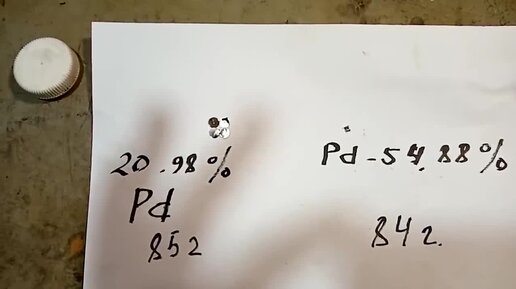 20.98%
Pd
85г
Pd-54.88%
84г.